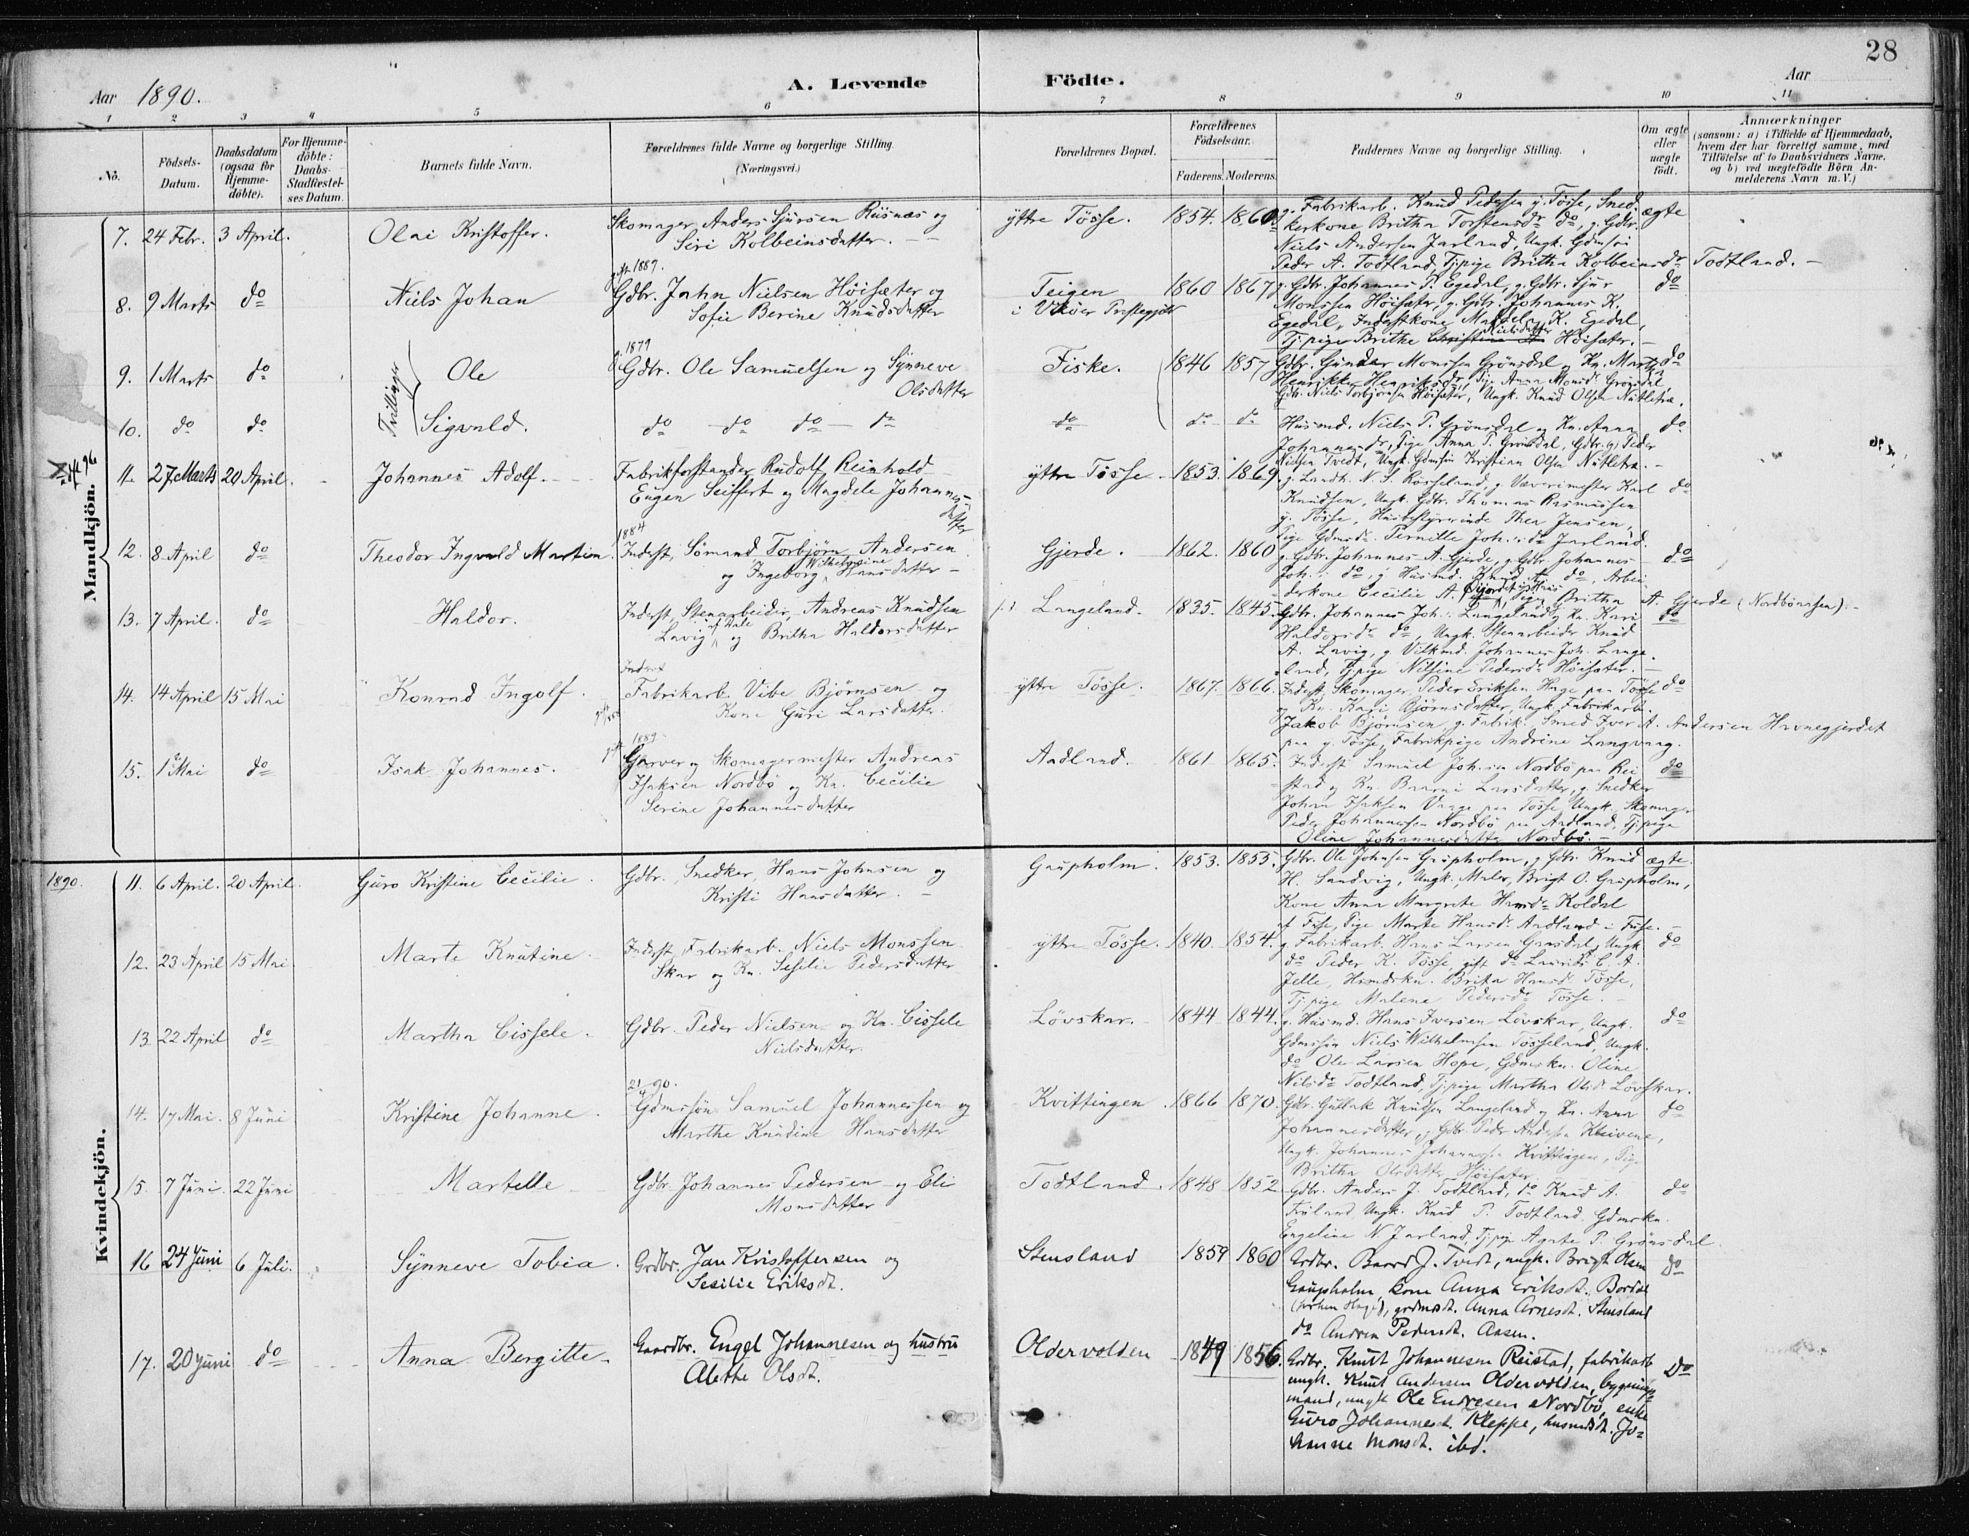 28
Aar 1890.
A. Levende Födte.
Aar
1 2 3 4 5 6 7 8 9 10 11
No.
Födsels-Datum.
Daabsdatum (ogsaa for Hjemmedöbte).
For Hjemmedöbte: Daabs-Stadfæstelses Datum.
Barnets fulde Navn.
Forældrenes fulde Navne og borgerlige Stilling.
(Næringsvei.)
Forældrenes Bopæl.
Forældrenes Födselsaar.
Faderens. Moderens.
Faddernes Navne og borgerlige Stilling.
Om ægte eller uægte födt.
Anmærkninger
(saasom: a) i Tilfælde af Hjemmedaab,
hvem der har forrettet samme, med
Tilföielse af to Daabsvidners Navne,
og b) ved uægtefödte Börn Anmelderens Navn m. V.)
Mandkjön.
7. 24 Febr. 3 April. Olai Kristoffer. Skomager Anders Sjursen Riisnæs og
Siri Kolbeinsdatter.
ÿttre Tösse. 1854. 1860 g. Fabrikarb. Knud Pedersen y. Tösse, Smed- ægte
kerkone Britha Torstensdr do, g. Gdbr.
Niels Andersen Jarland, Ungk. Gdmsön
Peder A. Todtland, Tj.pige Britha Kolbeinsdr Todtland.
8. 9 Marts do Niels Johan
gft 1889.
Gdbr. John Nielsen Höisæter og
Sofie Berine Knudsdatter
Teigen
i Vikör Prestegjeld
1860 1867 g. Gdbr. Johannes P. Egedal, g. Gdbr. Sjur do
Monssen Höisæter, g. Gdbr. Johannes K.
Egedal, Inderstkone K. Egedal,
Nielsdatter
Tj.pige Brithe Höisæter.
9. 1 Marts do Tvillinger Ole
g. 1879
Gdbr. Ole Samuelsen og Synneve
Olsdatter
Fiske. 1846 1857 Gdbr. Gunder Monssen Grönsdal og Kn. Martha do
Henrikke Henriksdr, Anna Monsdr Grönsdal,
Gdbr. Niels Torbjörnsen Höisæter, Ungk. Knud Olsen Nutletræ.
10. do do Sigvald. do do do do do do do
Husmd. Niels P. Grönsdal og Kn. Anna do
Johannesdr, Pige Anna P. Grönsdal, Gdbr. Peder
Nielsen Tvedt, Ungk. Gdmsön Kristian Olsen Nutletræ.
11. 27 Marts 20 April. Johannes Adolf. Fabrikforstander Rudolf Reinhold
Eugen Seiffert og Magdele Johannesdatter
ÿttre Tösse 1853. 1869. g. Landh. N. S. Rösseland, g. Værermester Karl do
Knudsen, Ungk. Gdbr. Thomas Rasmussen
y. Tösse, Husbestyrerinde Thea Jensen,
Pige Gdmdr. Pernille Joh. dr Jarland.
12. 8 April do Theodor Ingvald Martin.
1884
Inderst, Sömand Torbjörn Andersen
Wilhelmine
og Ingeborg Hansdatter
Gjerde. 1862. 1860 g. Gdbr. Johannes A. Gjerde, g. Gdbr. Johannes do
Joh. do, g. Husmd. Knud do, Arbeiderkone Cecilie A. Pige Britha A. Gjerde (Nordbönæsen).
13. 7 April. do Haldor. Inderst, Stenarbeider, Andreas Knudsen
Lavig og Britha Haldorsdatter
Langeland. 1835. 1845. Gdbr. Johannes Joh. Langeland, Kn. Kari do
Haldorsdr do, Ungk. Stenarbeider Knud
A. Lavig, g. Vilkmd. Johannes Joh. Langeland, Tj.pige Nilsine Pedersdr Höisæter.
14. 14 April 15 Mai Konrad Ingolf.
Inderst
Fabrikarb. Vibe Björnsen og
Kone Guri Larsdatter.
ÿttre Tösse. 1867. 1866. Inderst, Skomager Peder Eriksen Hage paa Tösse do
og Kn. Kari Björnsdatter, Ungk. Fabrikarb.
Jakob Björnsen, g. Fabrik. Smed Iver A. Andersen Havnegjerdet
paa y. Tösse, Fabrikpige Andrine Langvaag.
15. 1 Mai do Isak Johannes.
1889.
Garver og Skomagermester Andreas
Isaksen Nordbö og Kn. Cecilie
Serine Johannesdatter
Aadland. 1861 1865. Inderst Samuel Joh.sen Nordbö paa Reistad og Kn. Larsdatter, g. Snedker do
Johan Isaksen Vaage paa Tösse, Ungk. Skomager
Peder Johannessen Nordbö paa Aadland, Tj.pige
Oline Johannesdatter Nordbö.
Kvindekjön.
1890. 11. 6 April. 20 April. Guro Kristine Cecilie. Gdbr. Snedker, Hans Johnsen og
Kristi Hansdatter
Gaupholm. 1853. 1853. Gdbr. Ole Johnsen Gaupholm, g. Gdbr. Knud ægte.
H. Sandvig, Ungk. Maler, Brigt O. Gaupholm,
Kone Anna Margrete Hansdr Koldal
af Fuse, Pige Marte Hansdr Aadland i Fuse.
12. 23 April 15 Mai. Marte Knutine. Inderst, Fabrikarb. Niels Monssen
Skar og Kn. Sesilie Pedersdatter
ÿttre Tösse. 1840. 1854. g. Fabrikarb. Hans Larsen Ungk. do
do Peder K. Tösse, gift do Laurits C. A.
Jelle, Husmdskn. Brita Hansdr Tösse,
Tj.pige Malene Pedersdr Tösse.
13. 22 April do Martha Cissele. Gdbr. Peder Nielsen og Kn. Cissele
Nielsdatter.
Lövskar. 1844 1844. g. Husmd. Hans Iversen Lövskar, Ungk. do
Gdmsön Niels Wilhelmsen Tösseland, Ungk.
do Ole Larsen Hope, Gdmskn. Oline
Nilsdr Todtland, Tj.pige Martha Olsdr Lövskar.
14. 17 Mai. 8 Juni Kristine Johanne.
Gdmssön Samuel Johannessen og
Marthe Knudine Hansdatter
Kvittingen. 1866 1870. Gdbr. Gullak Knudsen Langeland og Kn. Anna do
Johannesdatter, g. Gdbr. Peder Andersen Kleivene,
Ungk. Johannes Johannessen Kvittingen, Pige
Britha Olsdatter Höisæter.
15. 7 Juni. 22 Juni Martelle Gdbr. Johannes Pedersen og Eli
Monsdatter
Todtland. 1848 1852 Gdbr. Anders J. Todtland, do Knud A. do
Ungk. Knud P. Todtland, Gdmskn.
Engeline N. Jarland, Tj.pige Agate P. Grönsdal.
16 24 Juni 6 Juli. Synneve Tobia. Grdbr. Jan Kristoffersen og
Sesilie Eriksdt.
Stensland 1859 1860 Grdbr. Baard J. Tvedt, ungk. Brigt Olsen do
Gaupholm, kone Anna Eriksdt. Bordal
grdmdt. Anna Arnesdt. Stensland
do Andrea Pedersdt. Aasen.
17. 20 Juni do Anna Bergitte. Gaardbr. Engel Johannesen og hustru
Alette Olsdt.
Oldervolden 1849 1856. Grdbr. Knut Johannesen Reistad, fabrikarb. do
ungk. Knut Andersen Oldervolden, bygningsmand, ungk. Ole Endresen Nordbö, enke
Guro Johannesdt. Kleppe, husmdsdt. Johanne Monsdt. ibd.